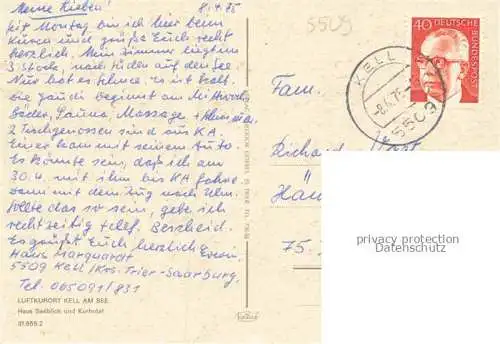 Meine Lieben! 8.4.75
Seit Montag bin ich hier beim
Kuren und grüße Euch recht
herzlich. Mein Zimmer liegt im
3. Stock, nach Süden auf den See
Nur hat es Schnee, es ist kalt.
Die gaudi beginnt am Mittwoch.
Bäder, Sauna, Massage +
2 Tischgenossen sind aus KA.
Einer kam mit seinem Auto.
Es könnte sein, daß ich am
30.4. mit ihm bis KA fahre
Dann mit dem Zug nach Ulm.
Sollte das so sein, gebe ich
rechtzeitig telef. Bescheid.
Es grüßt Euch herzlichst Erwin
Hans Marquardt
5509 Kell / Krs. Trier-Saarburg.
Tel. 065091/831
LUFTKURORT KELL AM SEE
Haus Seeblick und Kurhotel
5509
40 DEUTSCHE
BUNDESPOST
KELL
-8.4.75
5509
Fam.
Richard
75
privacy protection
Datenschutz